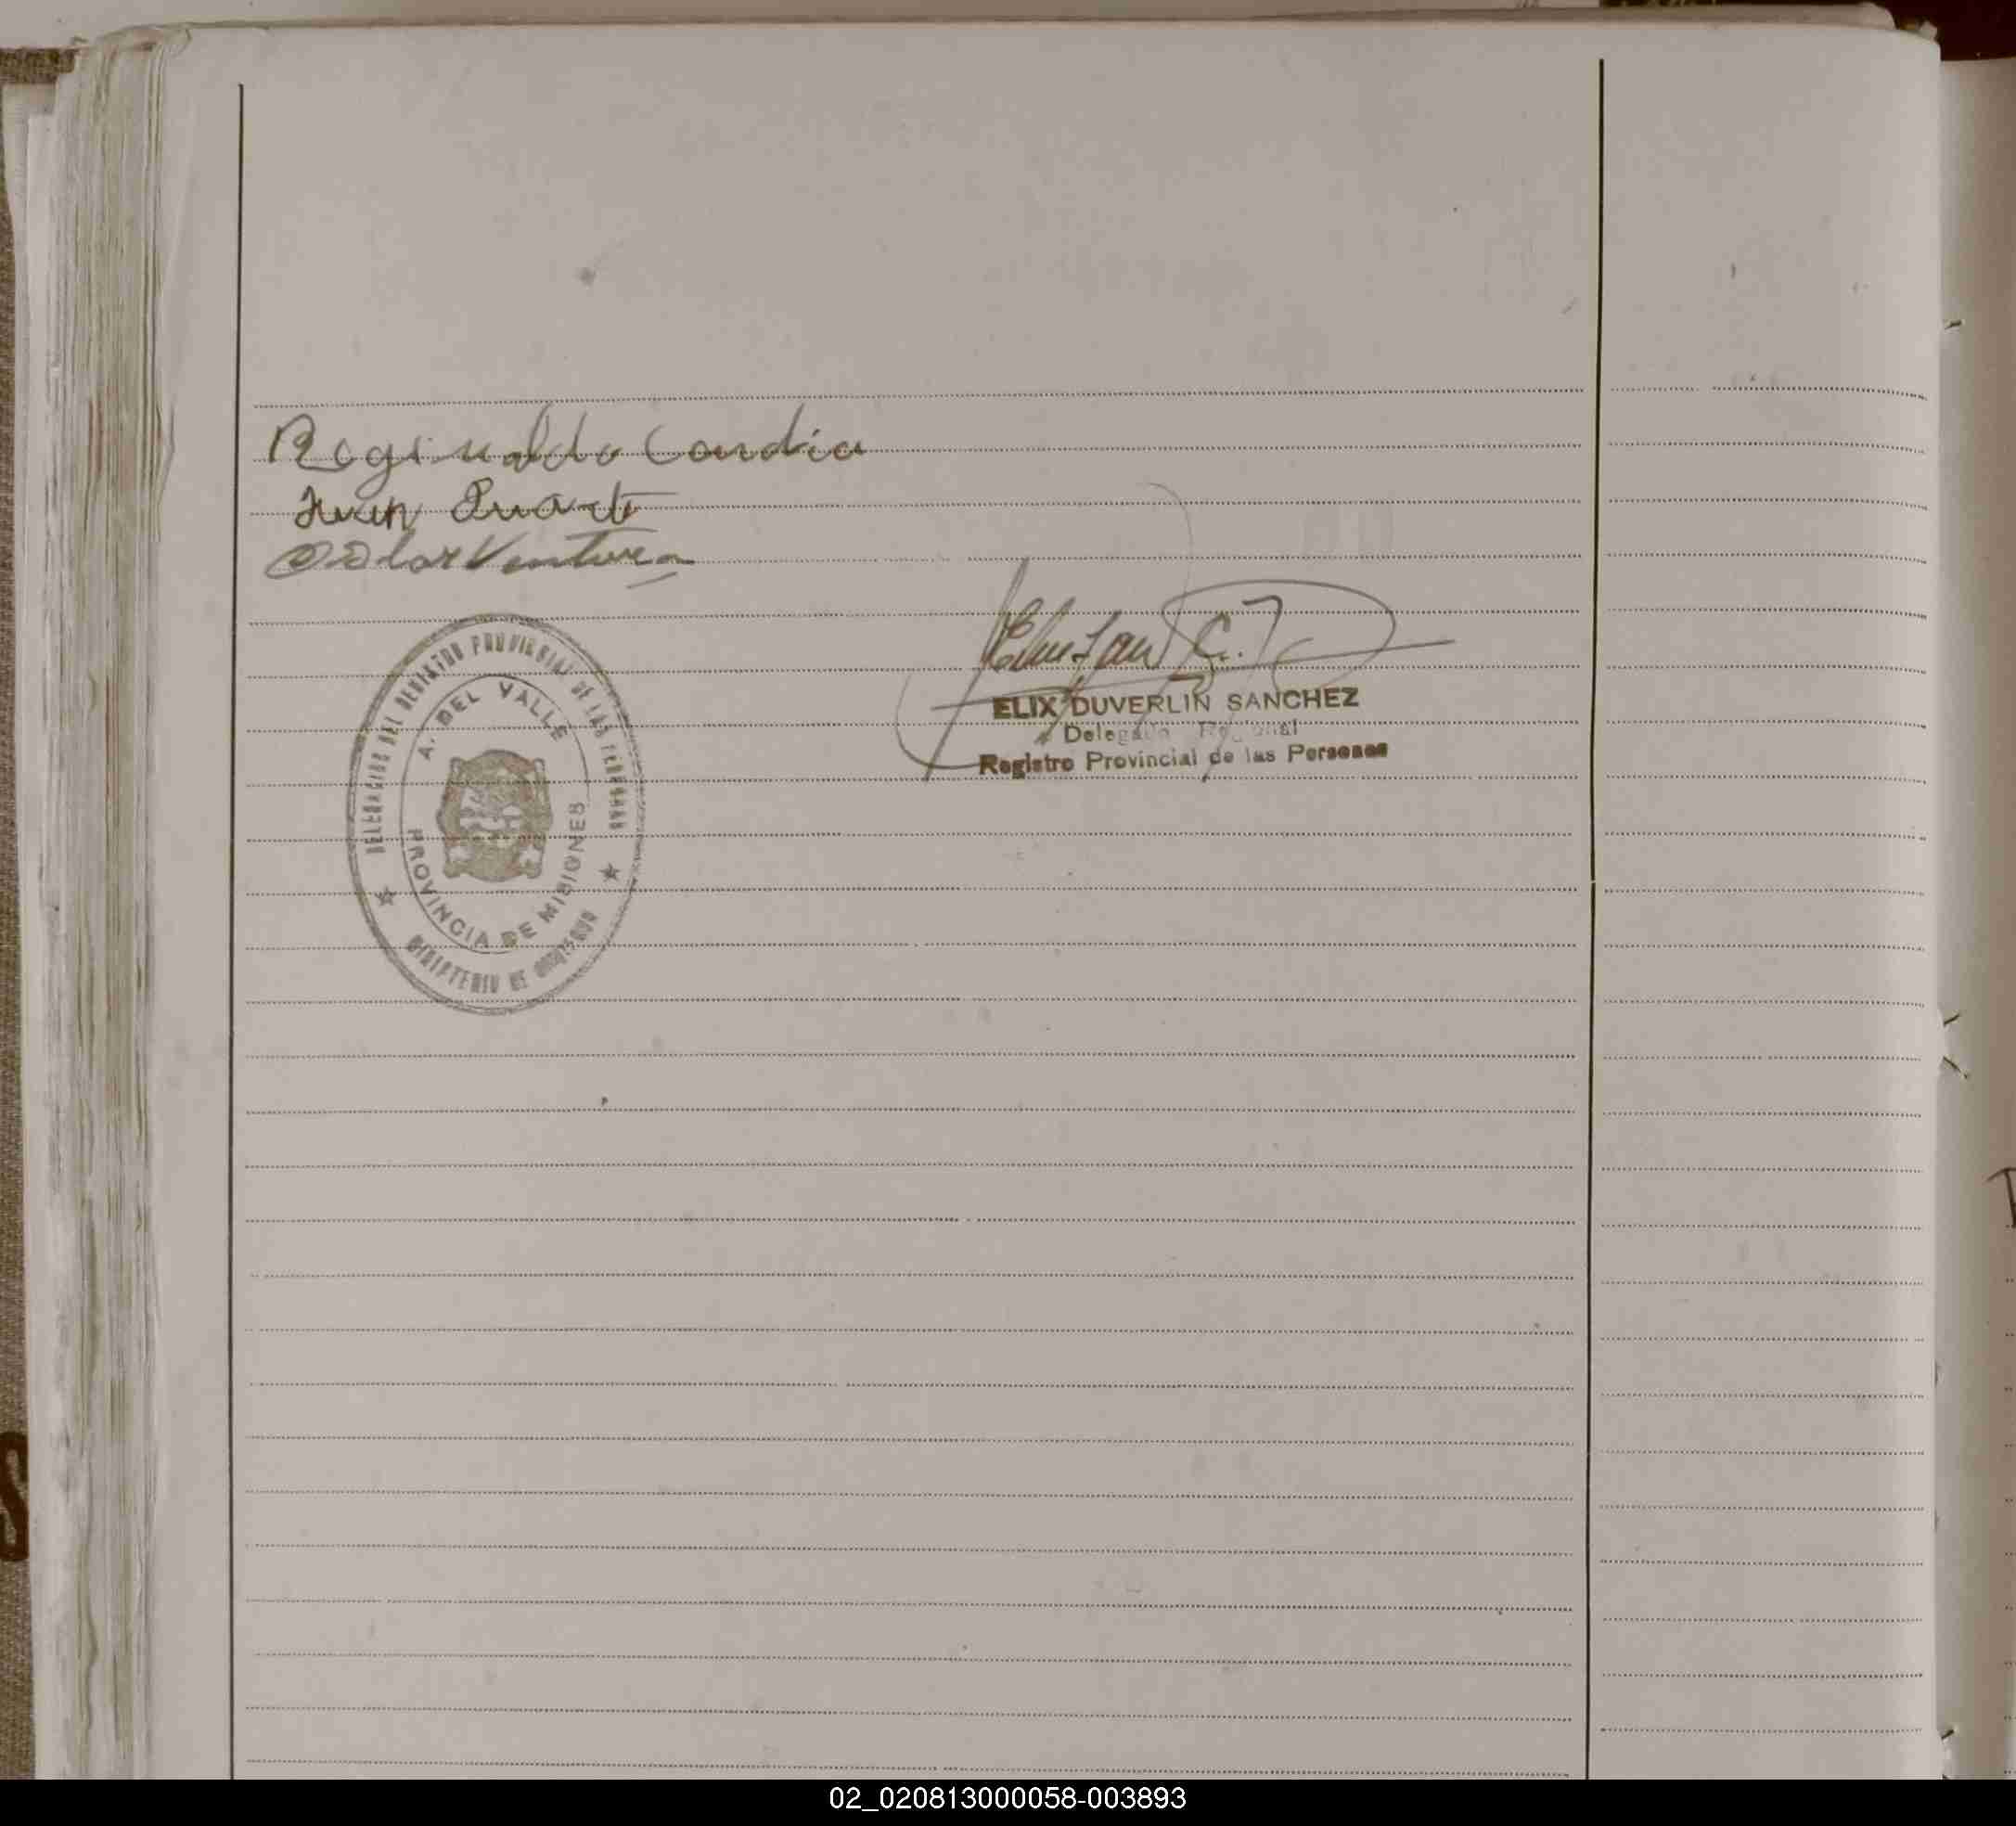 Reginaldo Candia
Juan Duarte
Ventura
ELIX DUVERLIN SANCHEZ
Delegado Regional
Registro Provincial de las Personas
DELEGACION DEL REGISTRO PROVINCIAL DE LAS PERSONAS
A. DEL VALLE
PROVINCIA DE MISIONES
MINISTERIO DE GOBIERNO
02_020813000058-003893